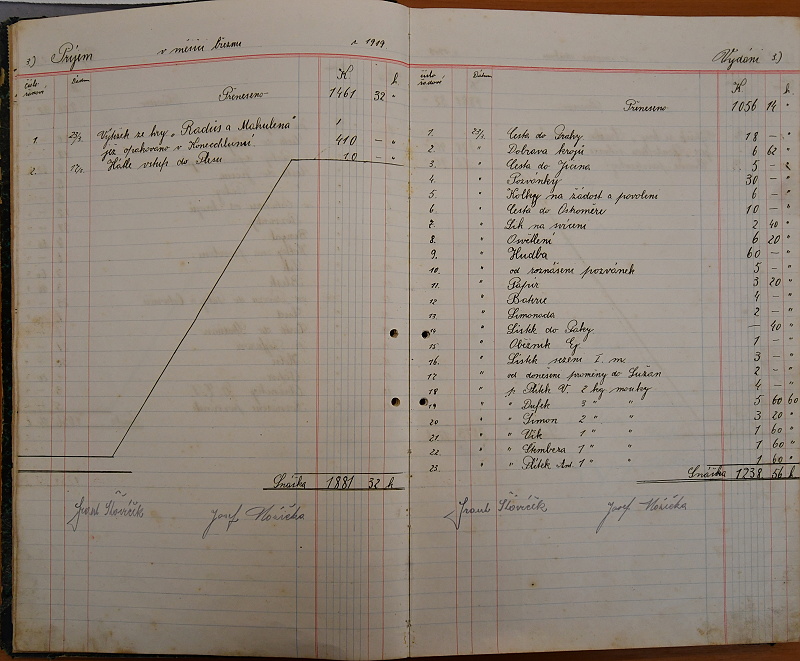 3) Příjem v měsíci březnu r. 1919
číslo řadové Dátum K h
Přineseno 1461 32 "
1. 23/3. Výtěžek ze hry „Radúz a Mahulena"
jež opakováno v Konecchlumí. 410 — "
2. 17/2. vstup do Plesu 10 — "
Snáška 1881 32 h
Frant Šťovíček Josef Nosička
Vydání 3)
číslo řadové Dátum K h
Přineseno 1056 14 "
1. 23/2. Cesta do Prahy 18 — "
2. " Doprava krojů 6 62 "
3. " Cesta do Jičína 5 —
4. " Pozvánky 30 — "
5. " Kolky na žádost a povolení 6 — "
6. " Cesta do Ostroměře 10 — "
7. " Líh na svícení 2 40 "
8. " Osvětlení 6 20 "
9. " Hudba 60 — "
10. " od roznášení pozvánek 5 — "
11. " Papír 3 20 "
12 " 4 — "
13. " Limonada 2 — "
14 " Lístek do Prahy — 40 "
15 " Oběžník 1 — "
16. " Lístek sezení I. m. 3 — "
17 " od donešení proměny do Lužan 2 — "
18 " p. Plítek V. 2 kg mouky 4 — "
19 " " Dufek 3 " " 5 60 60
20 " " Šimon 2 " " 3 20 "
21. " " Vik 1 " " 1 60 "
22. " " Štembera 1 " " 1 60 "
23. " " Plítek Ant. 1 " " 1 60 "
Snáška 1238 56 h
Frant Šťovíček Josef Nosička